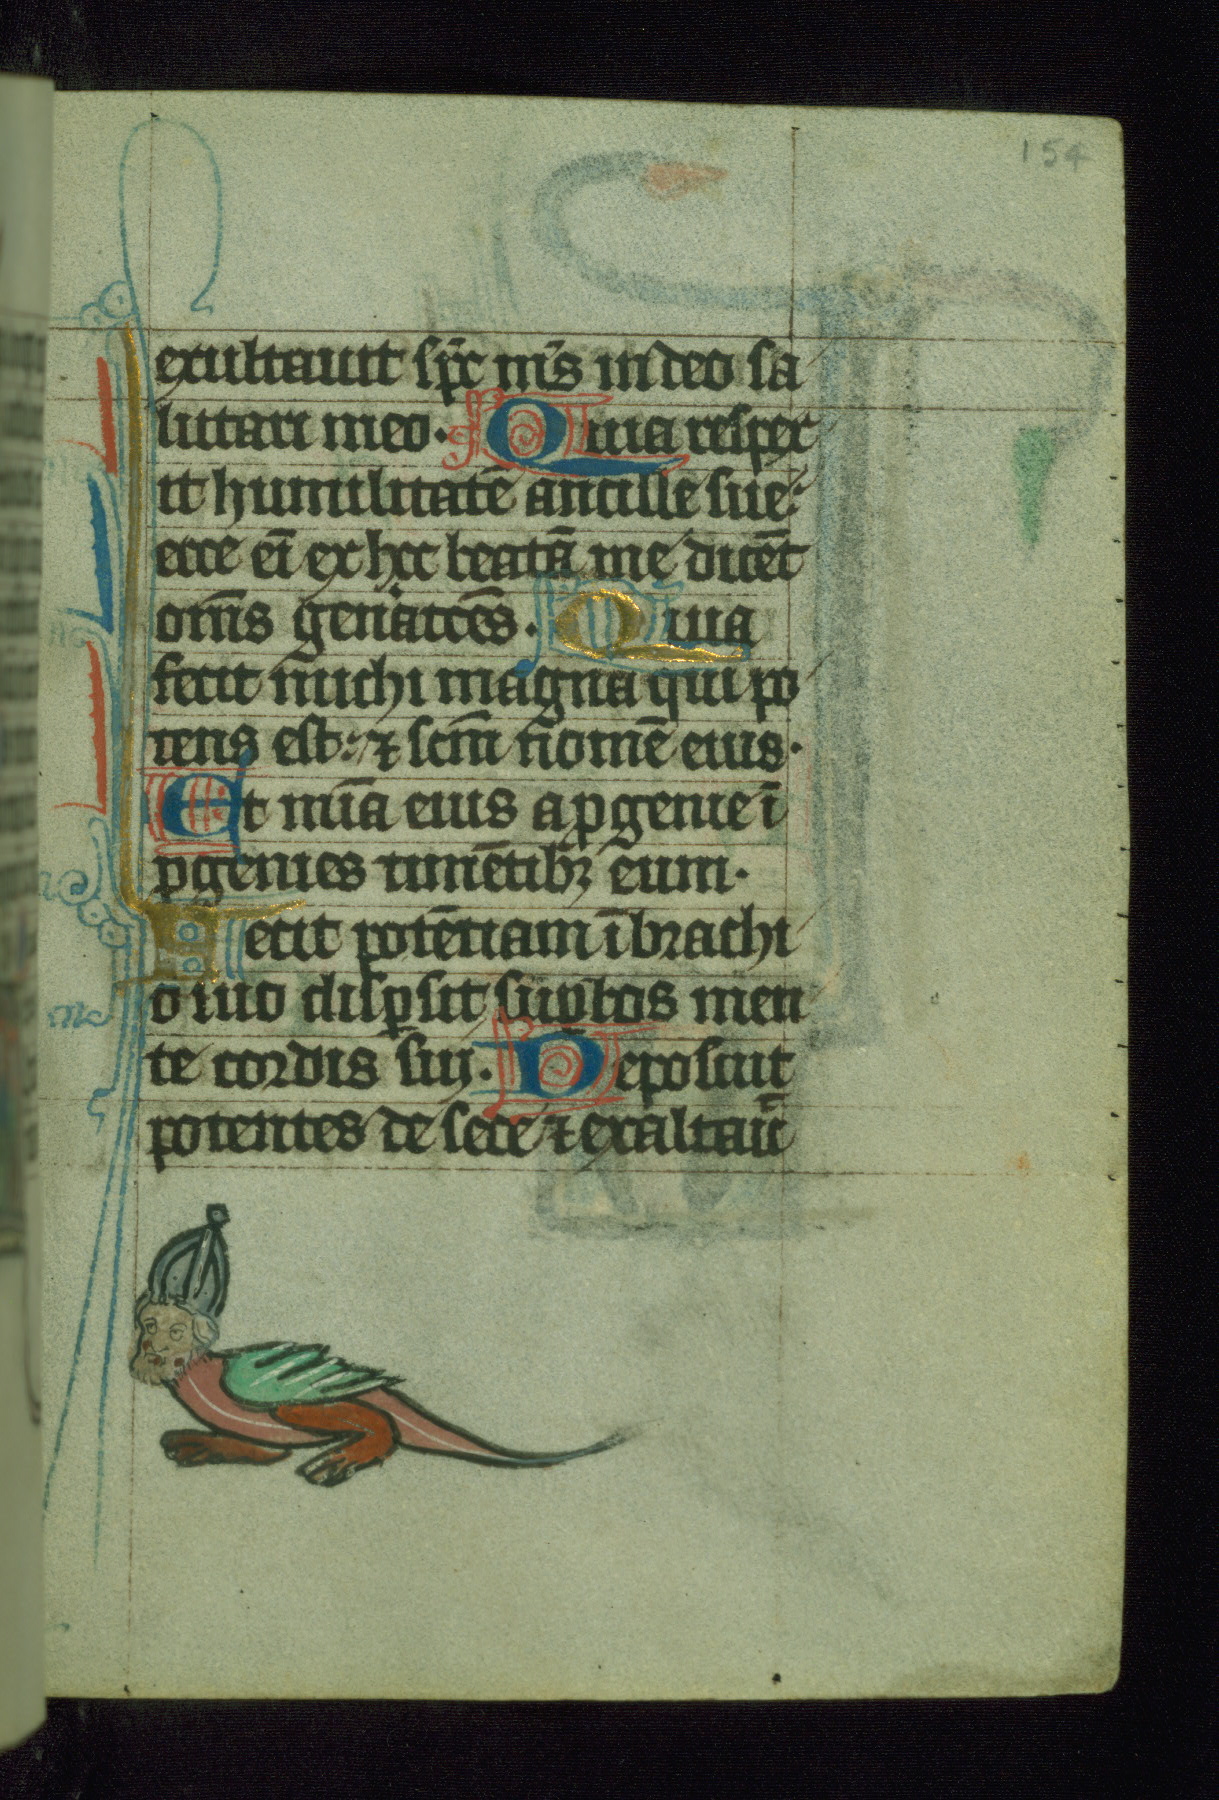 154
exultauit sp̄c m̄s in deo sa
lutari meo. Quia respex
it humilitatē ancille sue:
ecce ei̅ ex hͨc beatā me dicēt
om̄s gen̄atͨcēs. Quia
fecit michi magna qui po
tens est: ⁊ scm̄ nomē eius.
Et mīa eius a ꝓgenie ī
ꝓgenies timētibꝫ eum.
Fecit potētiam ī brachi
o suo disꝑsit suꝑbos men
te cordis sui. Deposuit
potentes de sede ⁊ exaltauit